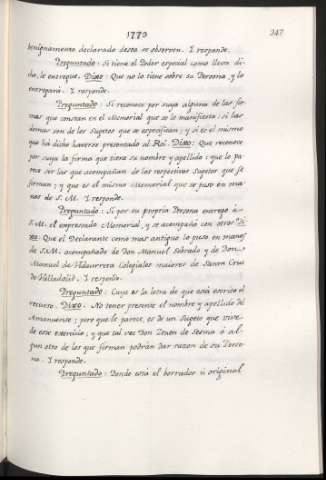 1770
247
benignamente declarado desta se observen. Y responde.
Preguntado: Si tiene el Poder especial como lleva di-
cho, le entregue. Dixo: Que no lo tiene sobre su Persona, y lo
entregará. Y responde.
Preguntado: Si reconoce por suya alguna de las fir-
mas que constan en el Memorial que se le manifiesta: si las
demas son de los Sugetos que se especifican; y si es el mismo
que há dicho haverse presentado al Rei. Dixo: Que reconoce
por suya la firma que tiene su nombre y apellido: que le pa-
rece ser las que acompañan de los respectivos Sugetos que se
firman; y que es el mismo Memorial que se puso en ma-
nos de S. M. Y responde.
Preguntado: Si por su propria Persona entregó á
S. M. el expresado Memorial, y se acompañó con otras. Di-
xo: Que el Declarante como mas antiguo lo puso en manos
de S. M. acompañado de Don Manuel Sobrado y de Don
Manuel de Hidaurreta Colegiales maiores de Santa Cruz
de Valladolid. Y responde.
Preguntado: Cuya es la letra de que está escrito el
recurso. Dixo: No tener presente el nombre y apellido del
Amanuense; pero que le parece, es de un Sugeto que vive
de ese exercicio; y que tal vez Don Benito de Sesma ó al-
gun otro de los que firman podrán dar razon de su Perso-
na. Y responde.
Preguntado: Donde está el borrador ú original